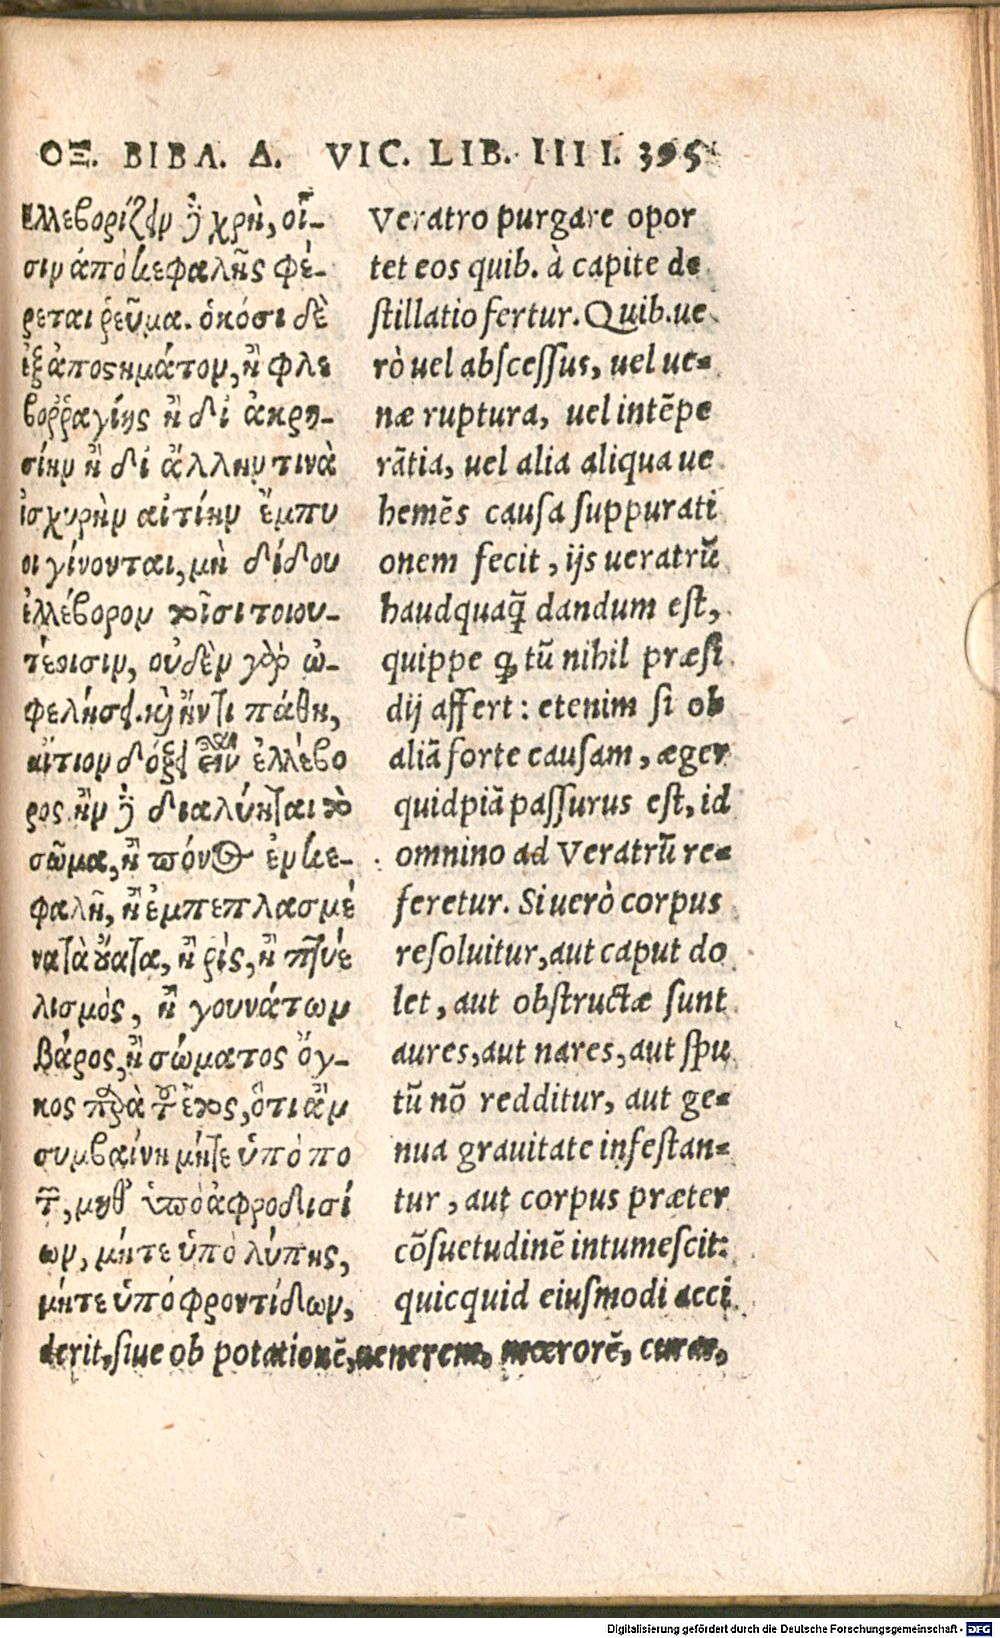 ΟΞ. ΒΙΒΛ. Δ. VIC. LIB. IIII. 395
Ἑλλεβορίζειν δὲ χρὴ, οἷ-
σιν ἀπὸ κεφαλῆς φέ-
ρεται ῥεῦμα. ὁκόσι δὲ
ἐξ ἀποςημάτων, ἢ φλε
βοῤῥαγίης ἢ δἰ ἀκρη-
σίην ἢ δἰ ἄλλην τινὰ
ἰσχυρὴν αἰτίην ἔμπυ
οι γίνονται, μὴ δίδου
ἑλλέβορον τοῖσι τοιου-
τέοισιν, οὐδὲν γὰρ ὠ-
φελήσει. καὶ ἤν τι πάθη,
αἴτιον δόξει εἶναι ἑλλέβο
ρος ἢν δὲ διαλύηται τὸ
σῶμα, ἢ πόνος ἐν κε-
φαλῇ, ἢ ἐμπεπλασμέ
να τὰ ȣ̓́ατα, ἢ ῥὶς, ἢ πτυέ
λισμὸς, ἢ γουνάτων
βάρος, ἢ σώματος ὄγ-
κος παρὰ τὸ ἔθος, ὅτι ἂν
συμβαίνη μήτε ὑπὸ πο
τῶν, μηθ' ὑπὸ ἀφροδισί
ων, μήτε ὑπὸ λύπης,
μήτε ὑπὸ φροντίδων,
Veratro purgare opor
tet eos quib. à capite de
ſtillatio fertur. Quib. ue
rò uel abſceſſus, uel ue-
næ ruptura, uel intẽpe
rãtia, uel alia aliqua ue
hemẽs cauſa ſuppurati
onem fecit, ijs ueratrũ
haudquaq̃ dandum eſt,
quippe ꝙ tũ nihil præſi
dij affert: etenim ſi ob
aliã forte cauſam, æger
quidpiã paſſurus eſt, id
omnino ad Veratrũ re-
feretur. Si uerò corpus
reſoluitur, aut caput do
let, aut obſtructæ ſunt
aures, aut nares, aut ſpu
tũ nõ redditur, aut ge-
nua grauitate infeſtan-
tur, aut corpus præter
cõſuetudinẽ intumeſcit:
quicquid eiuſmodi acci
derit, ſiue ob potationẽ, uenerem, mœrorẽ, curas,
Digitalisierung gefördert durch die Deutsche Forschungsgemeinschaft - DFG